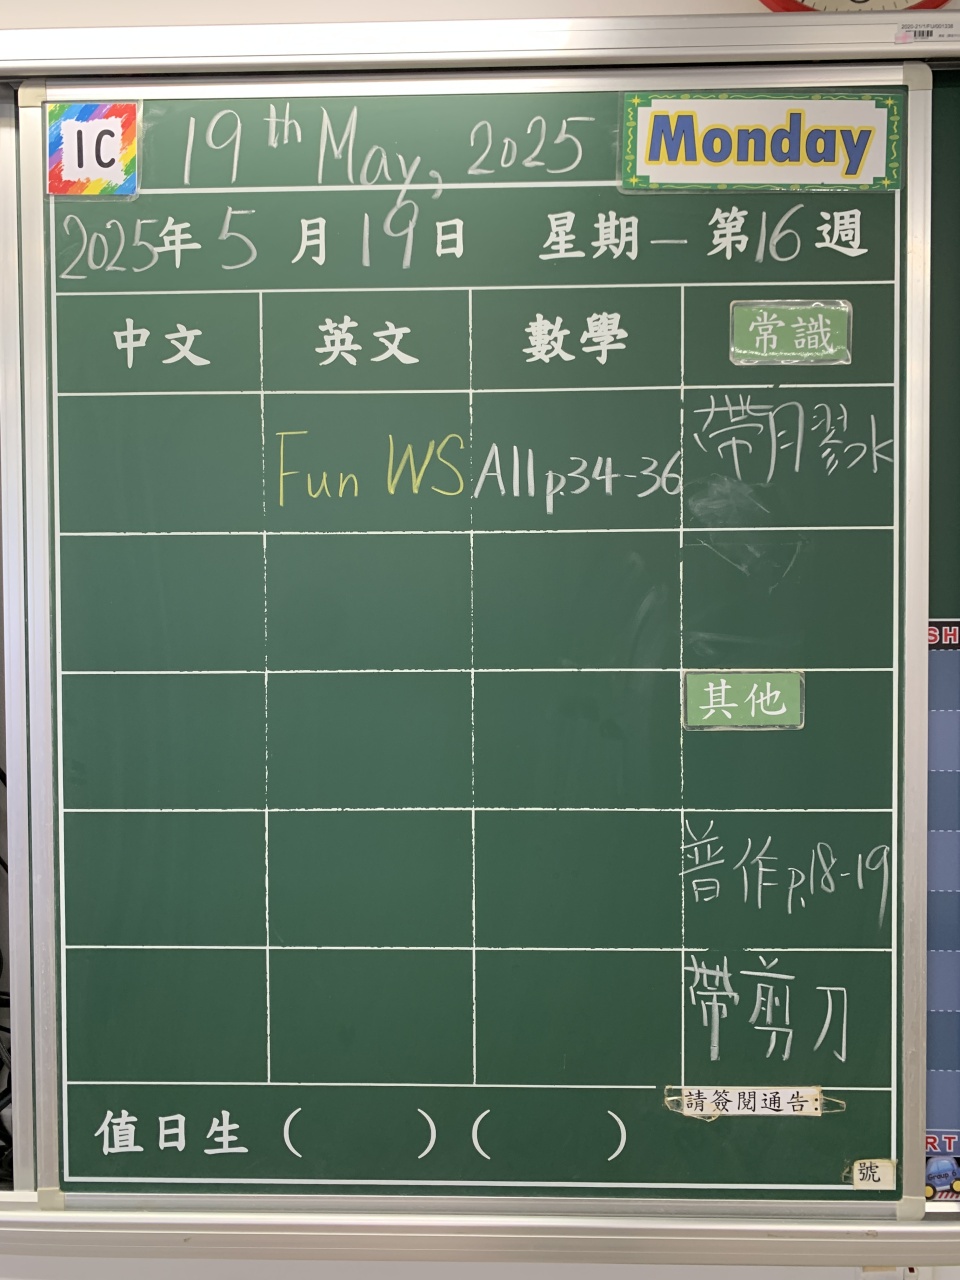 1C
19th May, 2025
Monday
2025年5月19日 星期一 第16週
中文 英文 數學 常識
Fun WS
All p.34-36
帶膠水
其他
普作p.18-19
帶剪刀
值日生( )( )
請簽閱通告:
號
SH
RT
Group